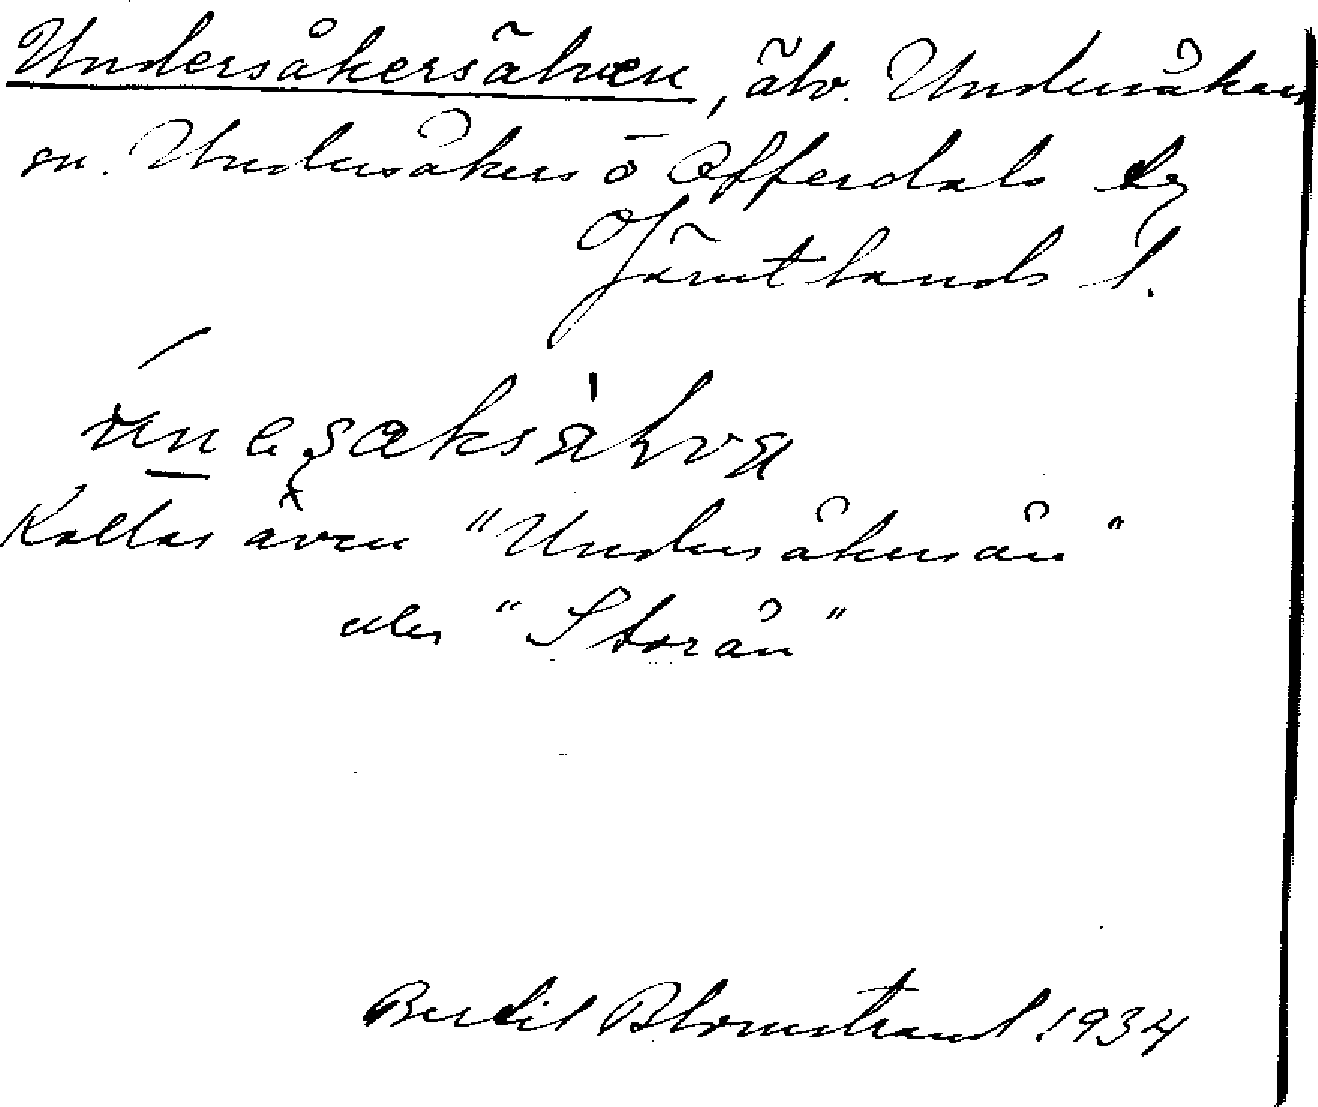 Undersåkersälven, älv. Undersåkers
sn. Undersåkers o Offerdals tg
Jämtlands l.
Kallas även "Undersåkersån"
eller "Storån"
Bertil Blomstrand 1934